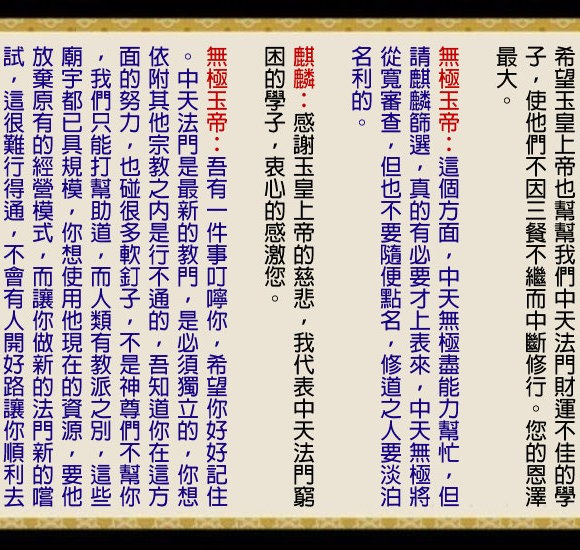 希望玉皇上帝也幫幫我們中天法門財運不佳的學
子，使他們不因三餐不繼而中斷修行。您的恩澤
最大。
無極玉帝：這個方面，中天無極盡能力幫忙，但
請麒麟篩選，真的有必要才上表來，中天無極將
從寬審查，但也不要隨便點名，修道之人要淡泊
名利的。
麒麟：感謝玉皇上帝的慈悲，我代表中天法門窮
困的學子，衷心的感激您。
無極玉帝：吾有一件事叮嚀你，希望你好好記住
。中天法門是最新的教門，是必須獨立的，你想
依附其他宗教之內是行不通的，吾知道你在這方
面的努力，也碰很多軟釘子，不是神尊們不幫你
，我們只能打幫助道，而人類有教派之別，這些
廟宇都已具規模，你想使用他現在的資源，要他
放棄原有的經營模式，而讓你做新的法門新的嚐
試，這很難行得通，不會有人開好路讓你順利去